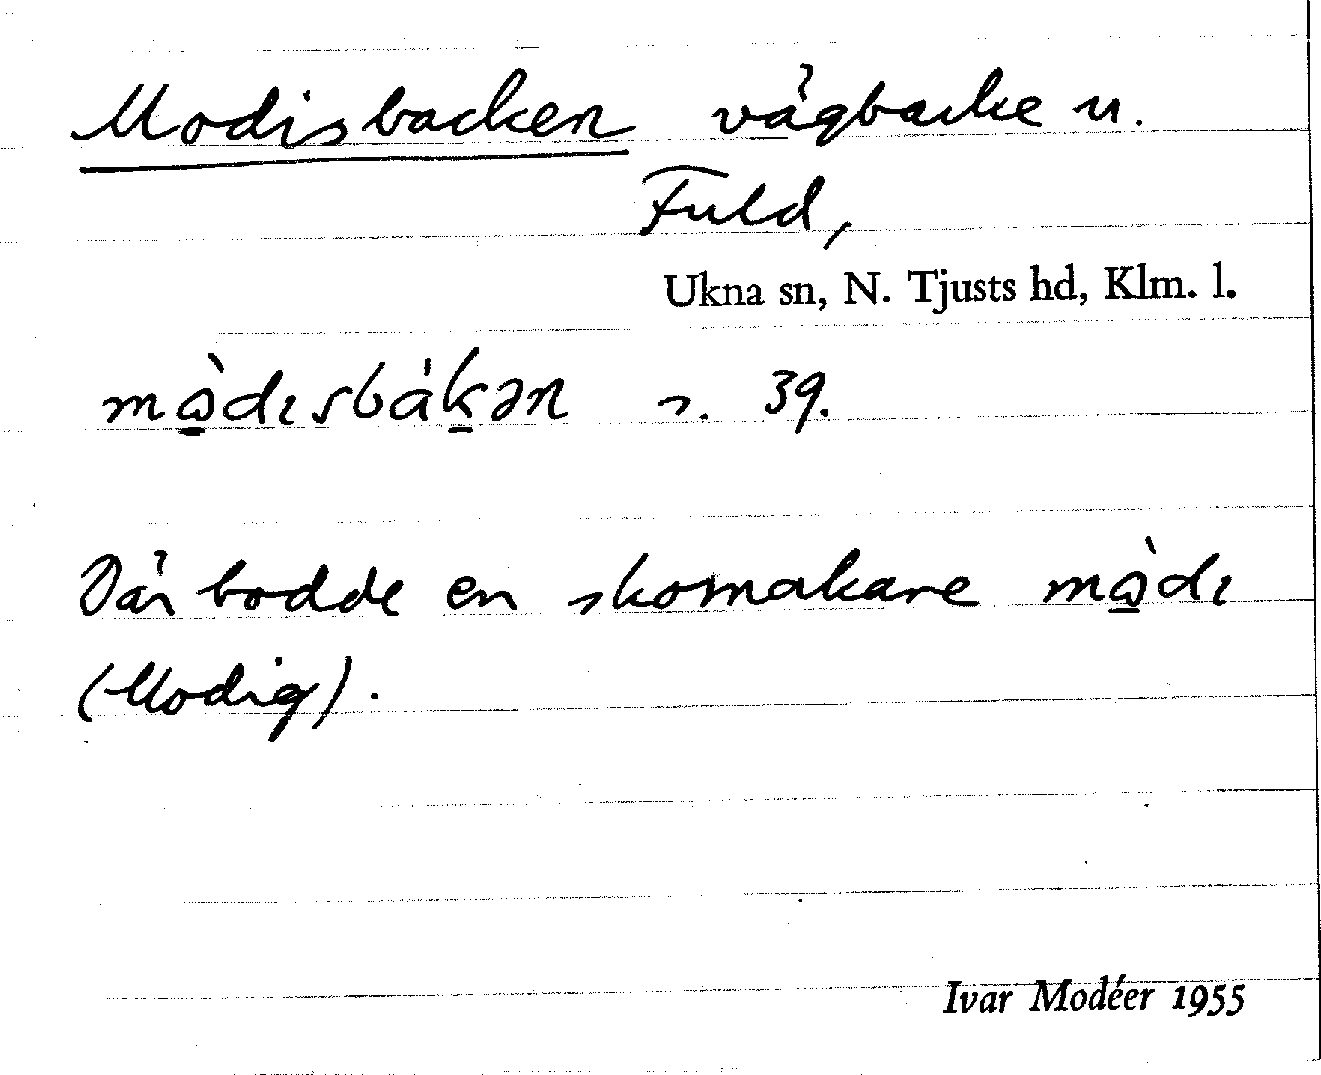 Modisbacken vägbacke u.
Fuld,
Ukna sn, N. Tjusts hd, Klm. l.
mò̱dısbáḵən s. 39.
Där bodde en skomakare mò̱dı
(Modig).
Ivar Modéer 1955